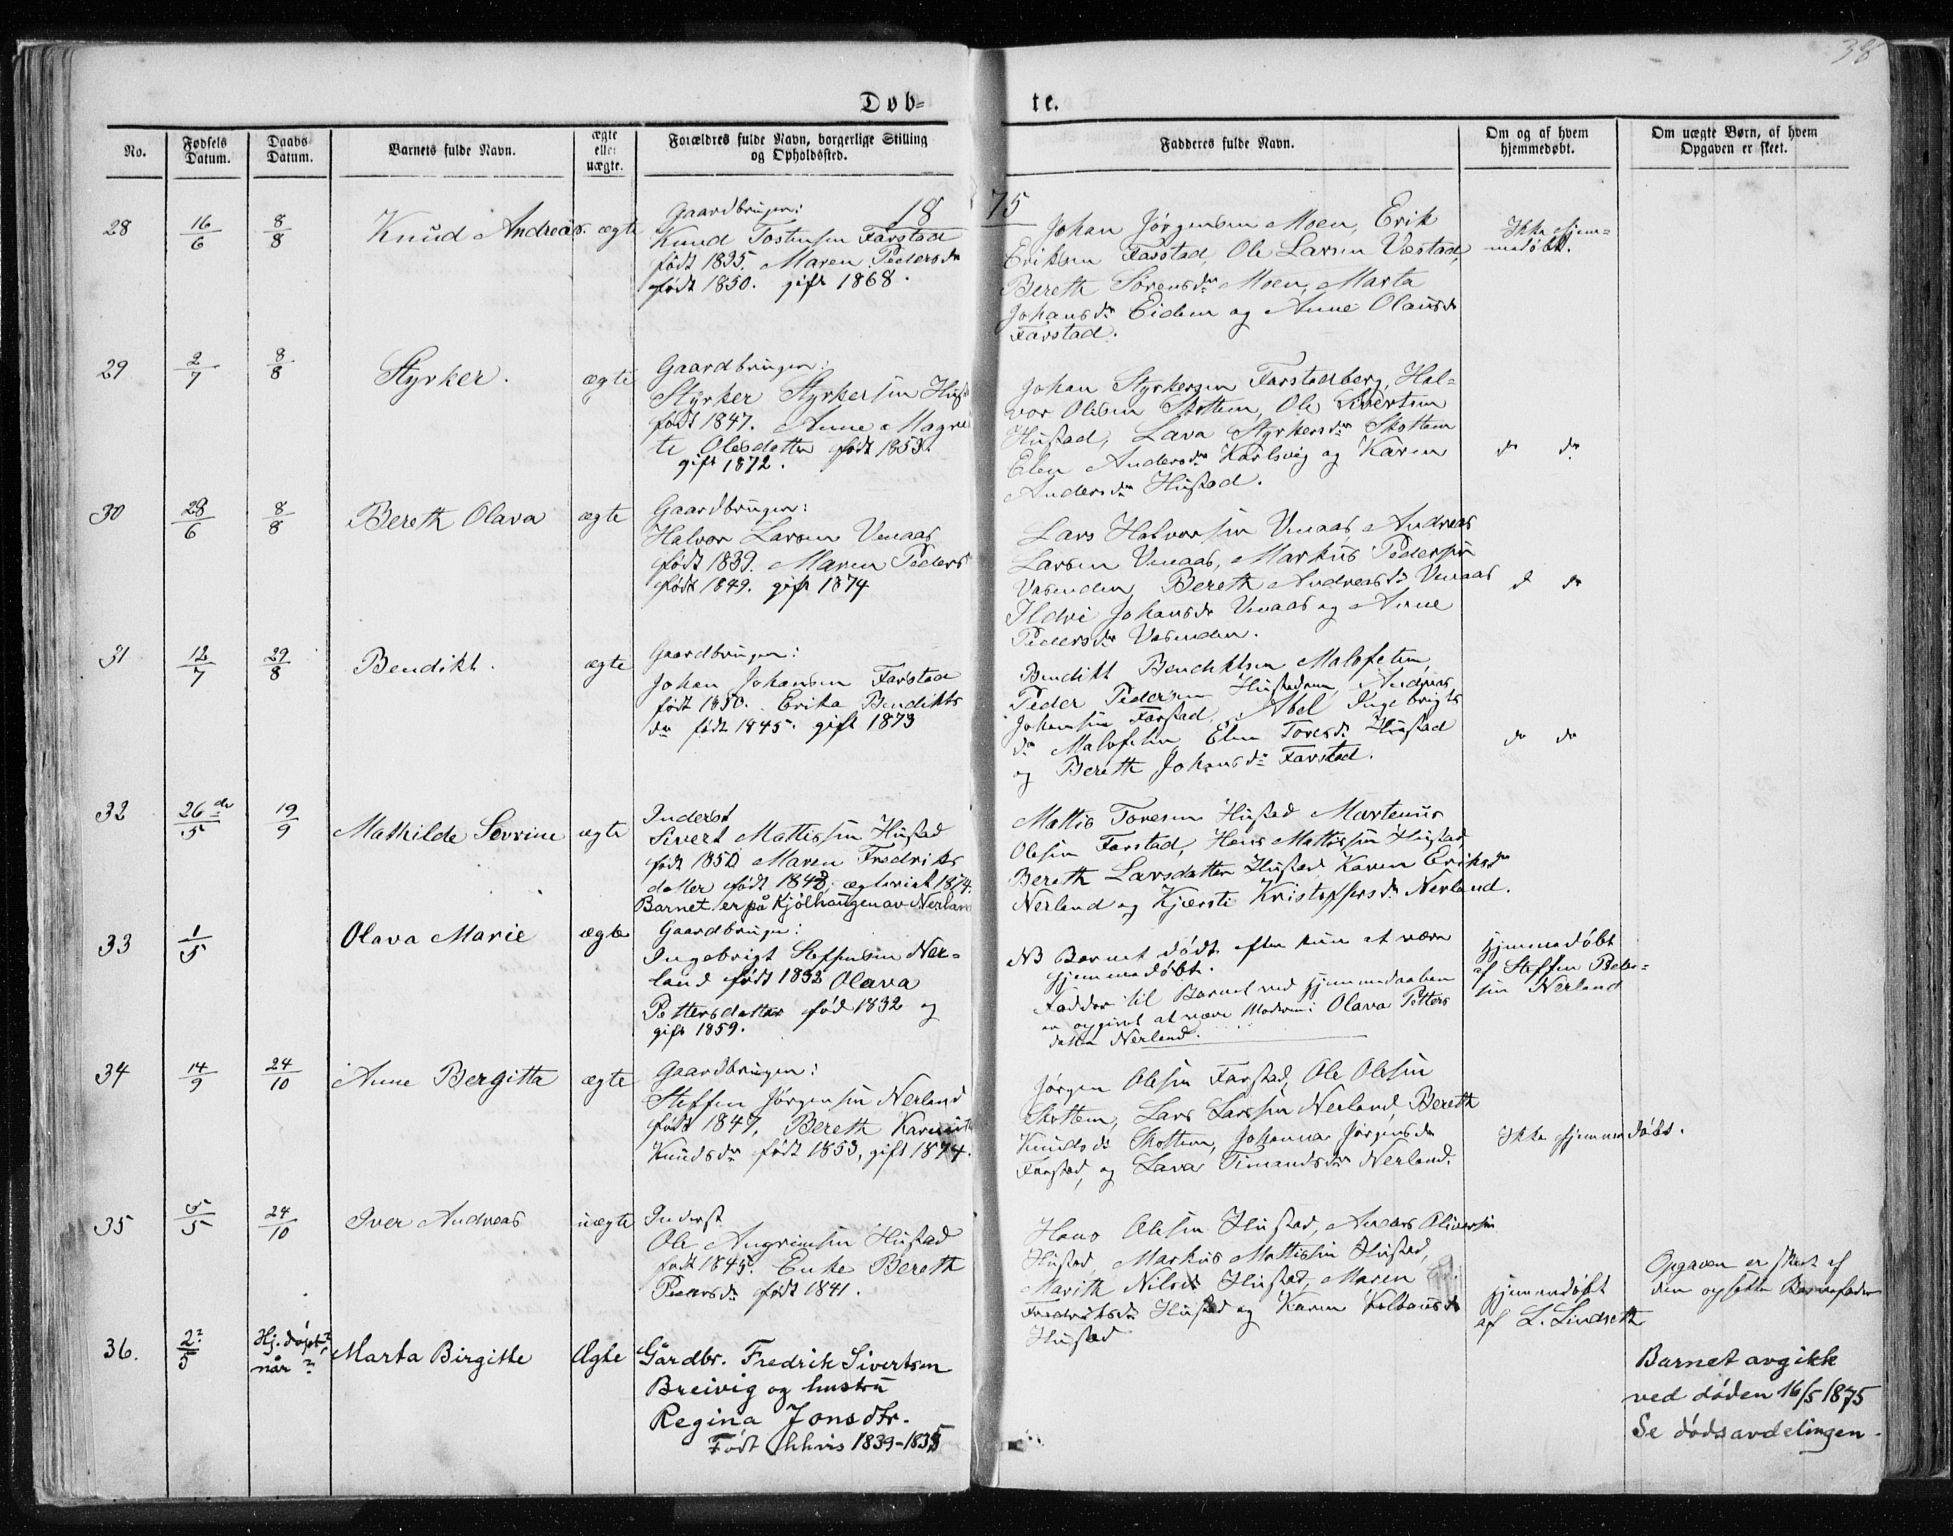 38
Døb-
te.
No.
Fødsels Datum.
Daabs Datum.
Barnets fulde Navn.
ægte eller uægte.
Forældres fulde Navn, borgerlige Stilling og Opholdssted.
Fadderes fulde Navn.
Om og af hvem hjemmedøbt.
Om uægte Børn, af hvem Opgaven er skeet.
18
75
28 16/6 8/8 Knud Andreas. ægte
Gaardbruger:
Knud Tostensen Farstad
født 1835. Maren Pedersdr
født 1850. gift 1868.
Johan Jørgensen Moen, Erik
Eriksen Farstad, Ole Larsen Vestad,
Bereth Sørensdr Moen, Marta
Johansdr Eidem og Anne Olausdr
Farstad.
Ikke hjem-
medøbt.
29 2/7 8/8 Styrker. ægte
Gaardbruger:
Styrker Styrkersen Hust
født 1847. Anne Magre
te Olesdatter født 1853.
gift 1872.
Johan Styrkersen Farstadberg, Hal-
vor Olesen Skottem, Ole Sivertsen
Hustad, Lava Styrkersdr Skottem
Elen Andersdr Karlsvig og Karen
Andersdr Hustad.
do do
30 28/6 8/8 Bereth Olava ægte
Gaardbruger:
Halvor Larsen Venaas
født 1839. Maren Peders
født 1849. gift 1874
Lars Halvorsen Venaas, Andreas
Larsen Venaas, Markus Pedersen
Vasenden, Bereth Andreasdr Venaas
Ildri Johansdr Venaas og Anne
Pedersdr Vasenden.
do do
31 12/7 29/8 Bendikt. ægte
Gaardbruger:
Johan Johansen Farstad
født 1850. Erika Bendikts
dr født 1845. gift 1873
Bendikt Bendiktsen Malefeten,
Peder Pedersen Hustadnes, Andreas
Johansen Farstad, Abel Ingebrigts
dr Malefeten, Elen Toresdr Hustad
og Bereth Johansdr Farstad.
do do
32 26de/5 19/9 Mathilde Sevrine ægte
Inderst
Sivert Mattissen Hustad
født 1850 Maren Fredriks
datter født 1848, ægteviet 1874.
Barnet er på Kjølhaugen av Nerland
Mattis Toresen Hustad Martenus
Olesen Farstad, Hans Mattissen Hustad,
Bereth Larsdatter Hustad, Karen Eriksdr
Nerland og Kjersti Kristoffersdr Nerland.
33 1/5 Olava Marie ægte
Gaardbruger:
Ingebrigt Steffensen Ner-
land født 1832 Olava
Pettersdatter fød 1832 og
gift 1859.
NB Barnet dødt efter kun at være
hjemmedøbt.
Fadder til Barnet ved hjemmedaaben
er opgivet at være Moderen: Olava Petters
datter Nerland.
hjemmedøbt
af Steffen Peder-
sen Nerland
34 14/9 24/10 Anne Bergitta ægte
Gaardbruger:
Steffen Jørgensen Nerland
født 1847, Bereth
Knudsdr født 1853, gift 1874.
Jørgen Olesen Farstad, Ole Olesen
Skottem, Lars Larsen Nerland, Bereth
Knudsdr Skottem, Johanna Jørgensdr
Farstad, og Lava Timandsdr Nerland.
Ikke hjemmedøbt.
35 5/5 24/10 Iver Andreas uægte
Inderst
Ole Angrimsen Hustad
født 1845. Enke Bereth
Pedersdr født 1841.
Hans Olesen Hustad, Anders Oliversen
Hustad, Markus Mattissen Hustad,
Marith Nilsdr Hustad, Maren
Fredriksdr Hustad og Karen Kolbeinsdr
Hustad
hjemmedøbt
af L. Lindseth
Opgaven er skeet af
den opsatte Barnefader
36. 2?/5 Hj. døpt, når? Marta Birgithe Ægte
Gårdbr. Fredrik Sivertsen
Breivig og hustru
Regina Jonsdtr.
Født hhvis 1839-1835
Barnet avgikk
ved døden 16/5 1875
Se dødsavdelingen.